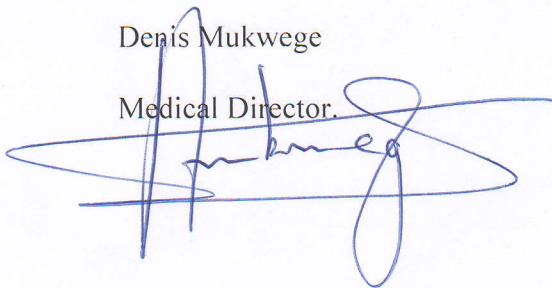 Denis Mukwege
Medical Director.